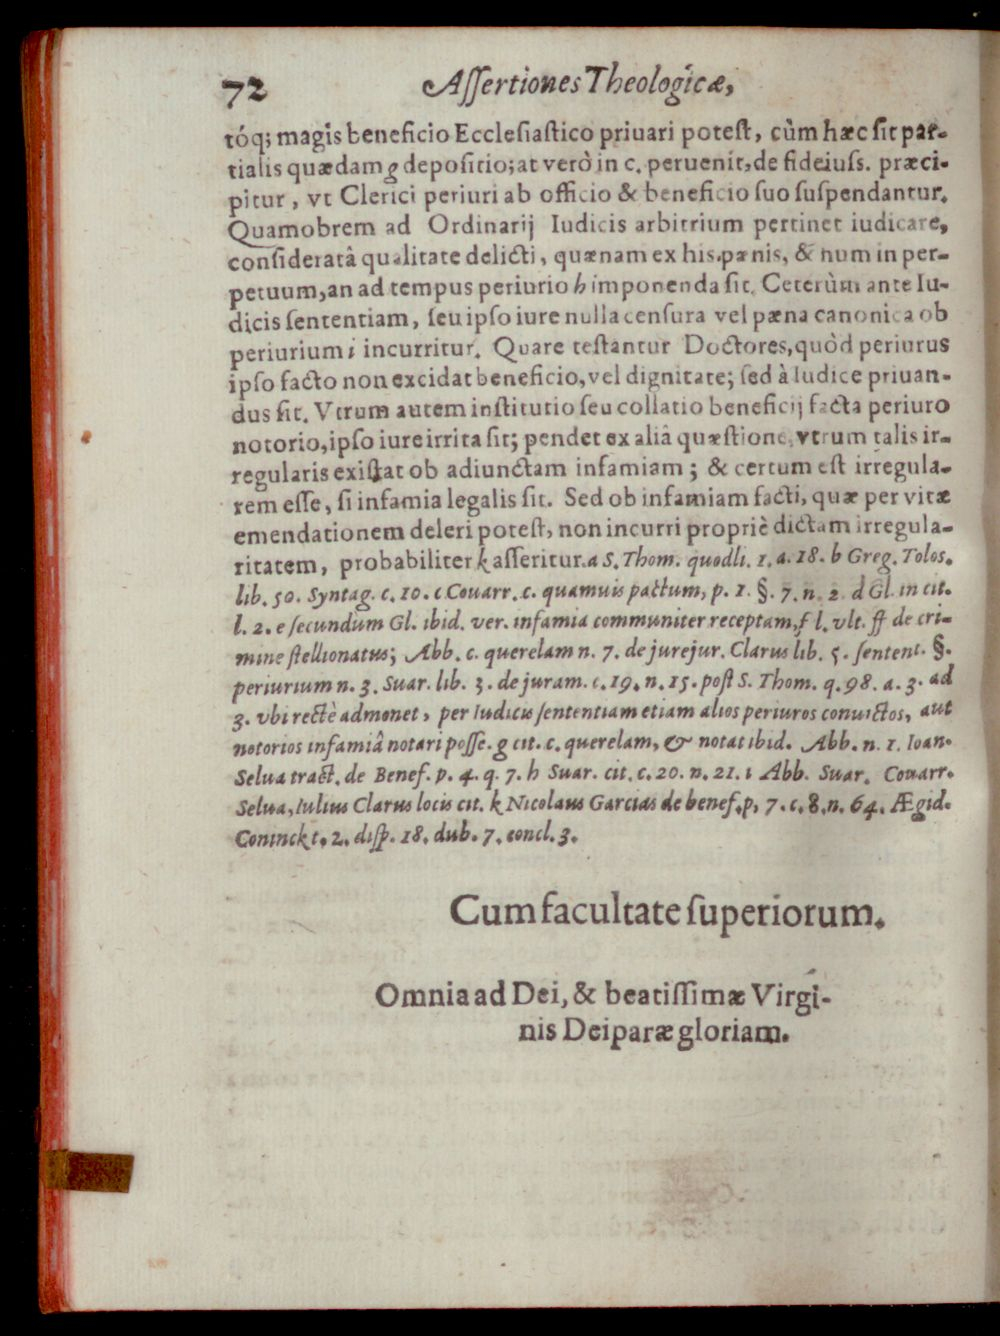 72 Aſſertiones Theologicæ,
tóq; magis beneficio Eccleſiaſtico priuari poteſt, cùm hæc ſit par-
tialis quædam g depoſitio; at verò in c. peruenit, de fideiuſs. præci-
pitur, vt Clerici periuri ab officio & beneficio ſuo ſuſpendantur.
Quamobrem ad Ordinarij Iudicis arbitrium pertinet iudicare,
conſideratâ qualitate delicti, quænam ex his pænis, & num in per-
petuum, an ad tempus periurio h imponenda ſit. Ceterùm ante Iu-
dicis ſententiam, ſeu ipſo iure nulla cenſura vel pæna canonica ob
periurium i incurritur. Quare teſtantur Doctores, quòd periurus
ipſo facto non excidat beneficio, vel dignitate; ſed à Iudice priuan-
dus ſit. Vtrum autem inſtitutio ſeu collatio beneficij facta periuro
notorio, ipſo iure irrita ſit; pendet ex aliâ quæſtione, vtrum talis ir-
regularis exiſtat ob adiunctam infamiam; & certum eſt irregula-
rem eſſe, ſi infamia legalis ſit. Sed ob infamiam facti, quæ per vitæ
emendationem deleri poteſt, non incurri propriè dictam irregula-
ritatem, probabiliter k aſſeritur. a S. Thom. quodli. 1. a. 18. b Greg. Tolos.
lib. 50. Syntag. c. 10. c Couarr. c. quamuis pactum, p. 1. §. 7. n. 2. d Gl. in cit.
l. 2. e ſecundum Gl. ibid. ver. infamia communiter receptam, f l. vlt. ff de cri-
mine ſtellionatus; Abb. c. querelam n. 7. de jurejur. Clarus lib. 5. ſentent. §.
periurium n. 3. Suar. lib. 3. de juram. c. 19. n. 15. poſt S. Thom. q. 98. a. 3. ad
3. vbi rectè admonet, per Iudicis ſententiam etiam alios periuros conuictos, aut
notorios infamiâ notari poſſe. g cit. c. querelam, & notat ibid. Abb. n. 1. Ioan.
Selua tract. de Benef. p. 4. q. 7. h Suar. cit. c. 20. n. 21. i Abb. Suar. Couarr.
Selua, Iulius Clarus locis cit. k Nicolaus Garcias de benef. p. 7. c. 8. n. 64. Ægid.
Coninck t. 2. diſp. 18. dub. 7. concl. 3.
Cum facultate ſuperiorum.
Omnia ad Dei, & beatiſſimæ Virgi-
nis Deiparæ gloriam.